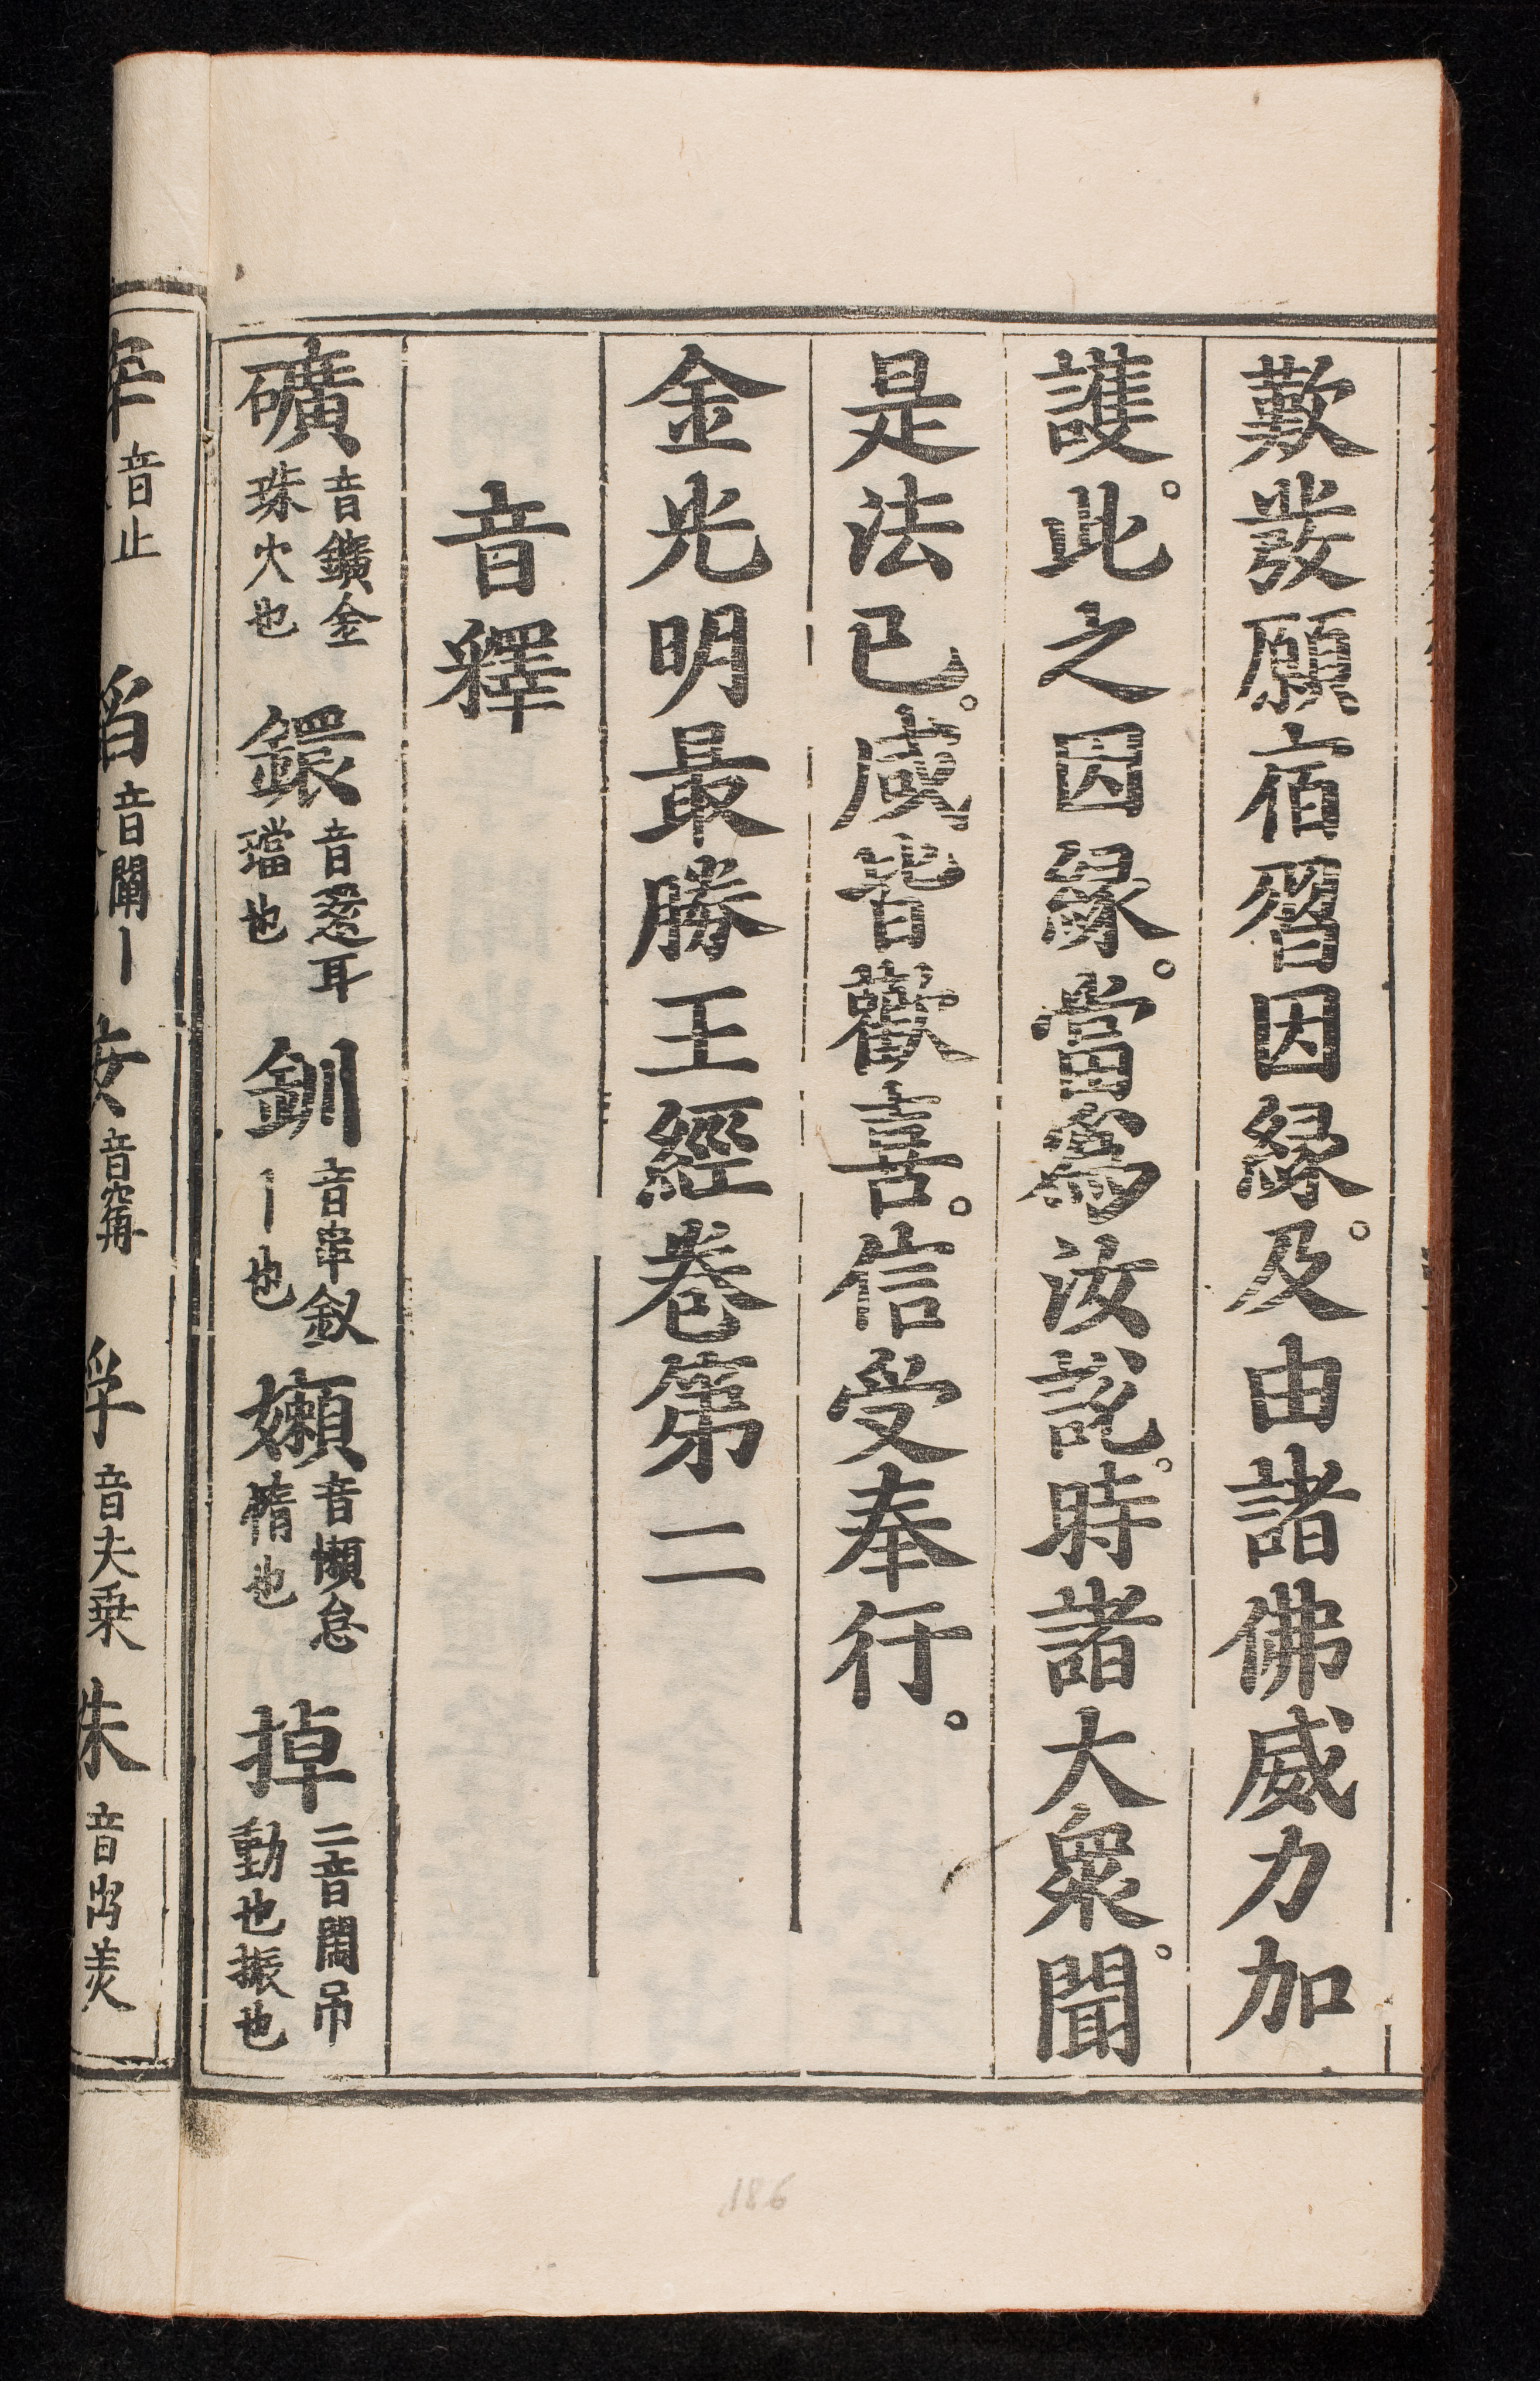 歎發願宿習因緣。及由諸佛威力加
護。此之因緣。當爲汝說。時諸大衆。聞
是法已。咸皆歡喜。信受奉行。
金光明最勝王經卷第二
音釋
礦 音鑛金珠穴也 鐶 音還耳璫也 釧 音串釵丨也 嬾 音懶怠惰也 掉 二音鬧吊動也振也
音止 音闡丨 音 孚 音夫乗 朱 音
186